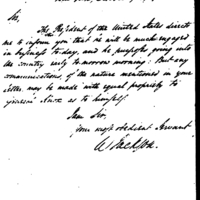 Sir,
The President of the United States directs
me to inform you that he will be much engaged
in business to-day, and he proposes going into
the country early to-morrow morning: But any
communications, of the nature mentioned in your
letter, may be made with equal propriety to
General Knox as to himself.
I am Sir,
Your most obedient Servant
W Jackson.